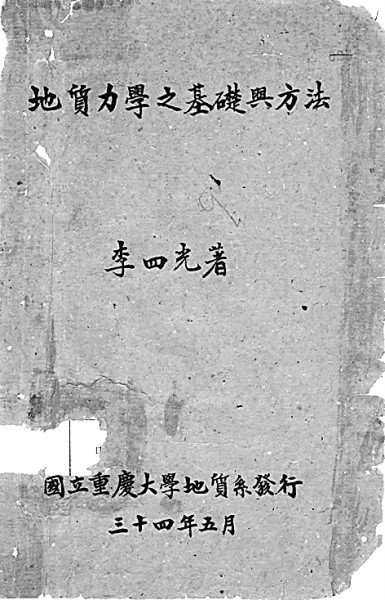 地質力學之基礎與方法
李四光著
國立重慶大學地質系發行
三十四年五月